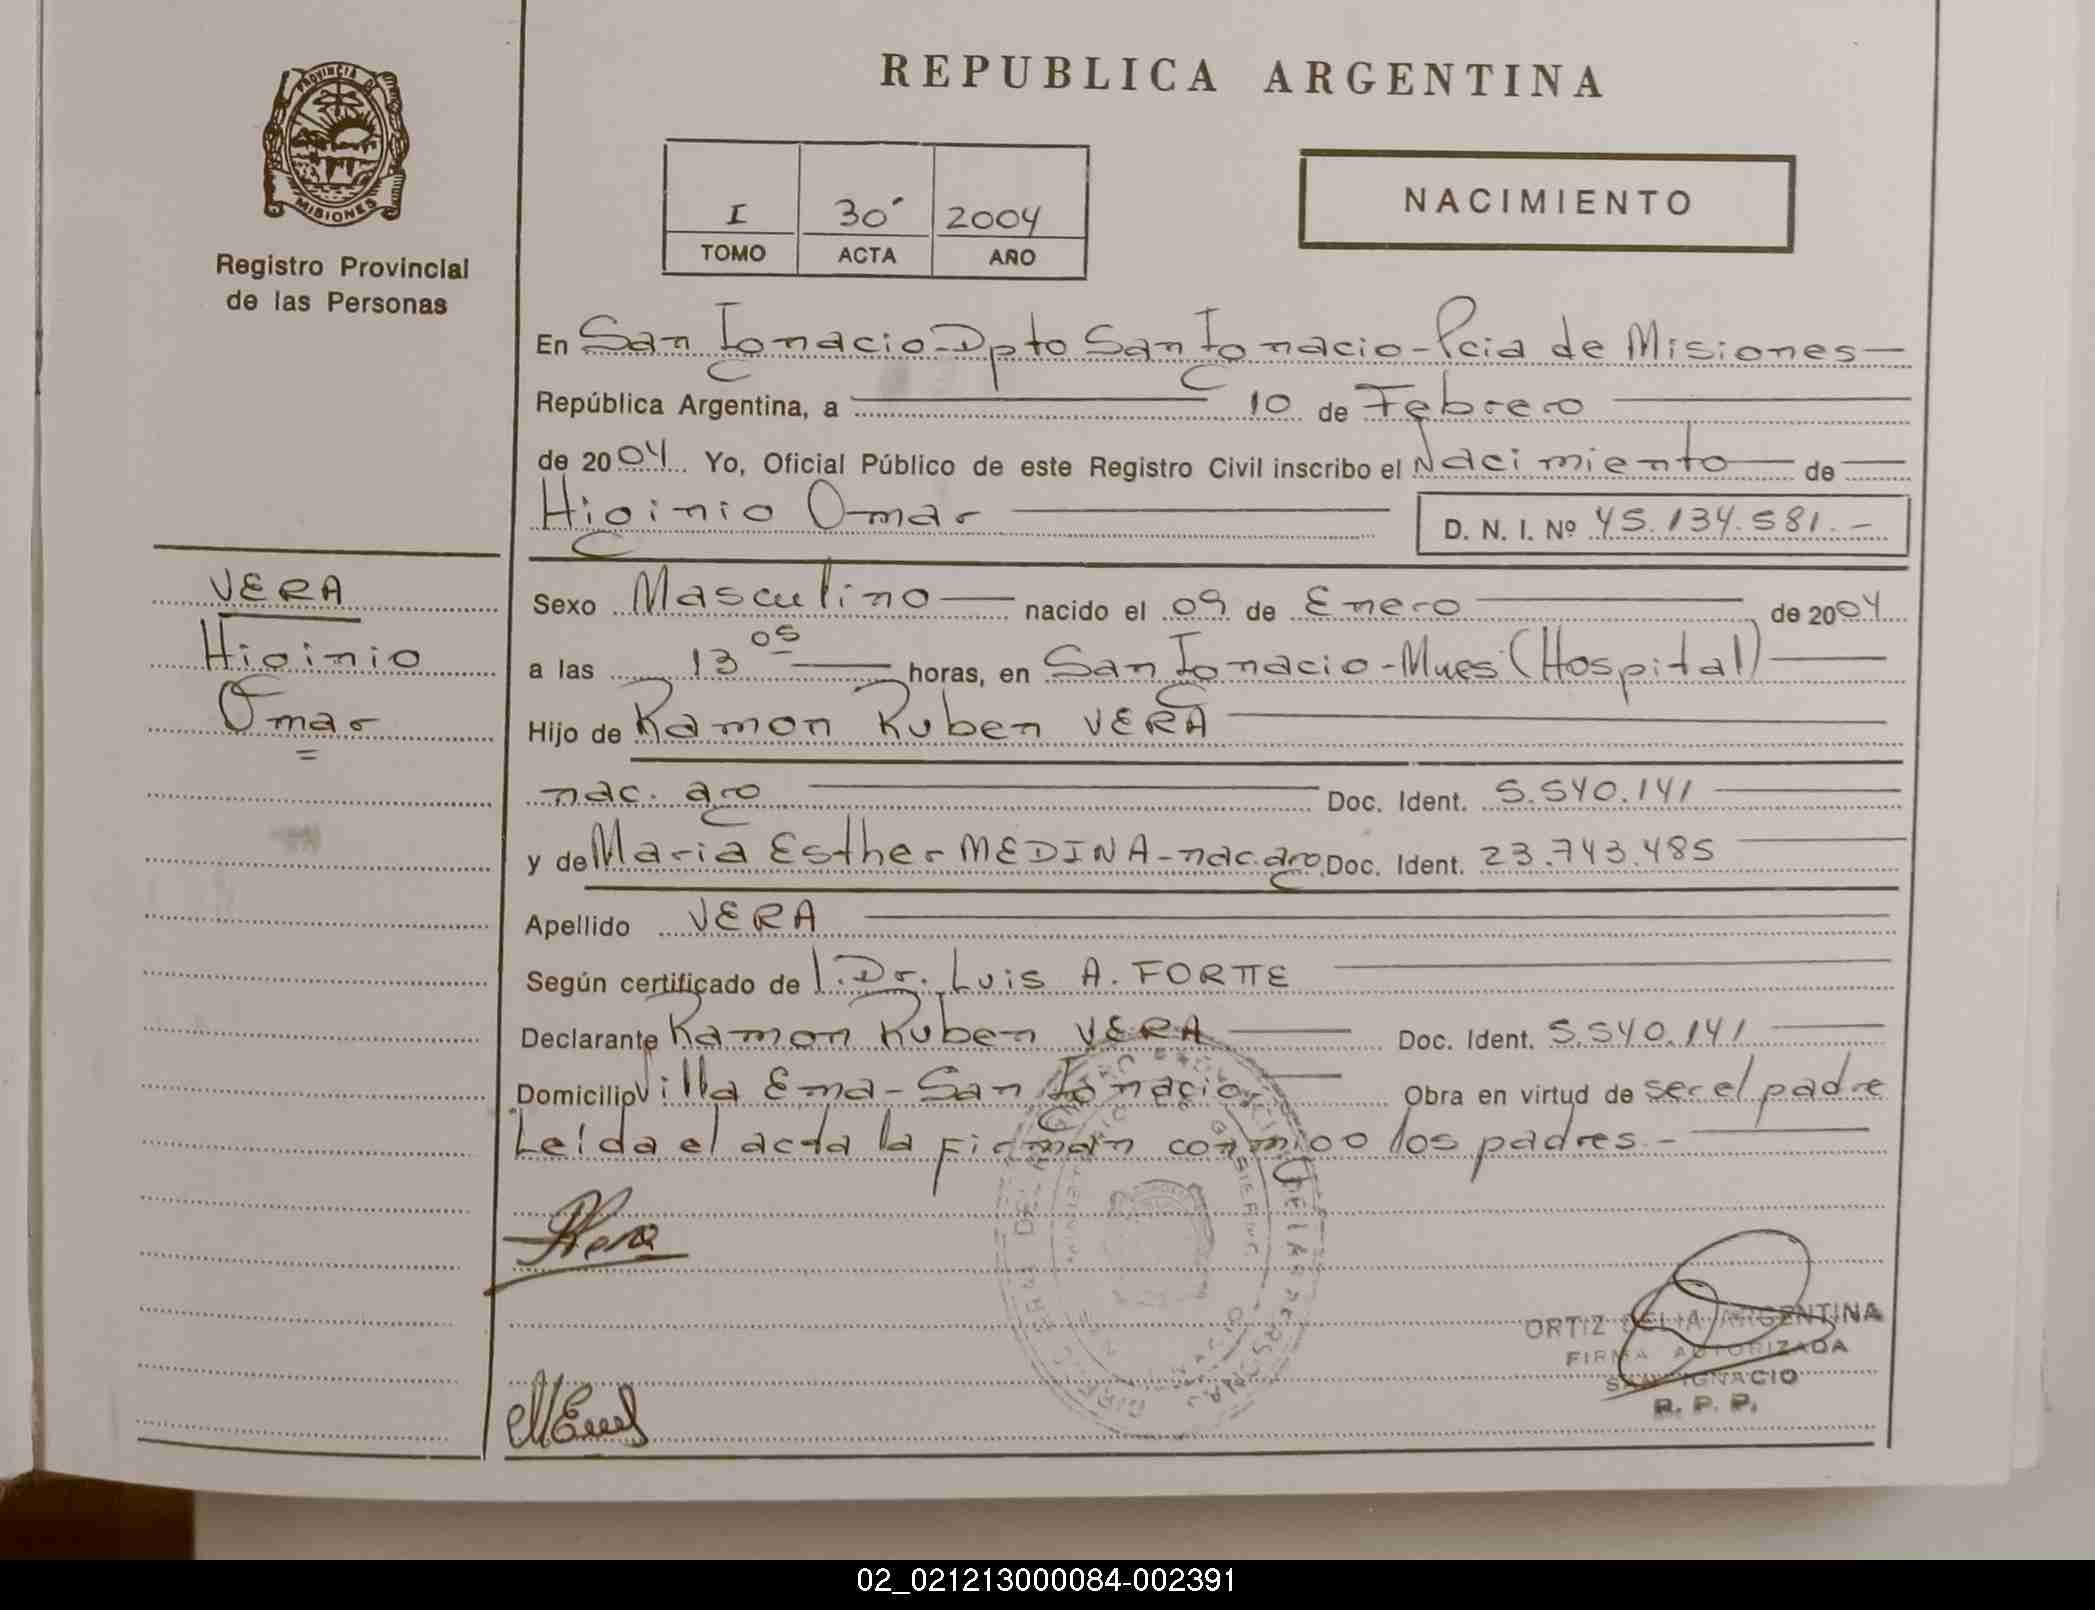 REPUBLICA ARGENTINA
PROVINCIA DE
MISIONES
Registro Provincial
de las Personas
I 30 2004
TOMO ACTA AÑO
NACIMIENTO
En San Ignacio-Dpto San Ignacio-Pcia de Misiones—
República Argentina, a 10 de Febrero
de 2004 Yo, Oficial Público de este Registro Civil inscribo el Nacimiento de
Higinio Omar D. N. I. Nº 45.134.581.-
VERA
Higinio
Omar
Sexo Masculino nacido el 09 de Enero de 2004
a las 13 05 horas, en San Ignacio-Mnes (Hospital)
Hijo de Ramon Ruben VERA
nac. arg Doc. Ident. 5.540.141
y de Maria Esther MEDINA-nac. arg Doc. Ident. 23.743.485
Apellido VERA
Según certificado de l. Dr. Luis A. FORTTE
Declarante Ramon Ruben VERA Doc. Ident. 5.540.141
Domicilio Villa Ema-San Ignacio Obra en virtud de ser el padre
Leída el acta la firman conmigo los padres.-
ORTIZ DELIA ARGENTINA
FIRMA AUTORIZADA
SAN IGNACIO
R. P. P.
02_021213000084-002391